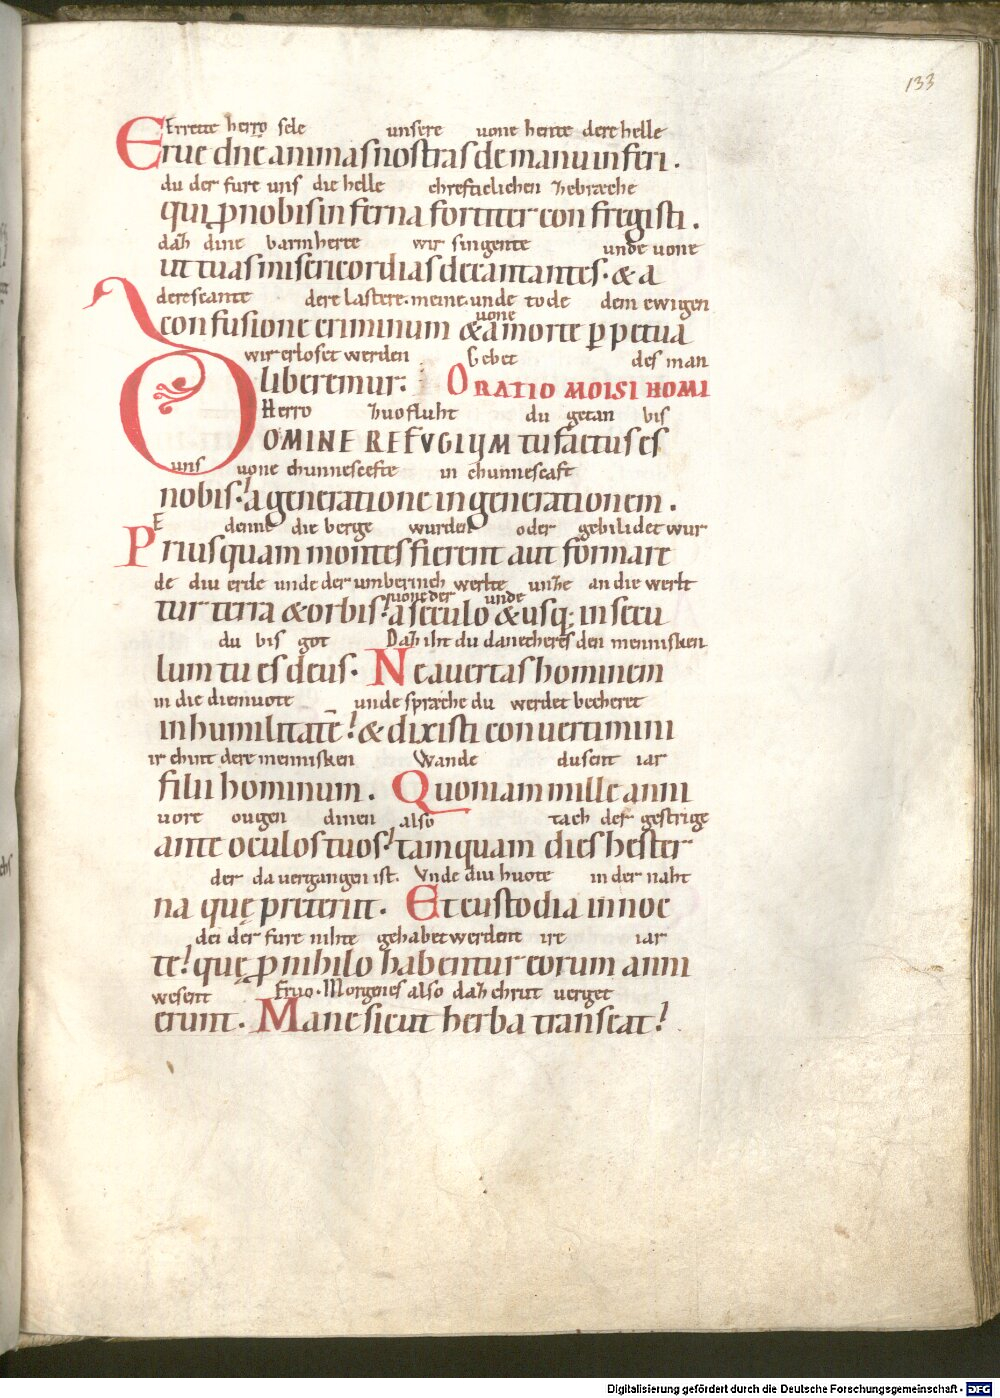 133
Errette herro sele unsere uone hente dere helle
Erue dn̄e animas nostras de manu inferi .
du der fure uns die helle chreftielichen zebræche
qui ꝓ nobis inferna fortiter confregisti .
daz dine barmherte wir singente unde uone
ut tuas misericordias decantantes . & a
derescante dere lastere . meine unde tode dem ewigen
uone
confusione criminum & a morte ꝑpetua
wir erloset werden Gebet des man
liberemur . ORATIO MOISI HOMI
Herro zuofluht du getan bis
DOMINE REFVGIUM tu factus es
uns uone chunnescefte in chunnescaft
nobis : a generatione in generationem .
E denne die berge wurden oder gebilidet wur
Priusquam montes fierent aut formare
de diu erde unde der umberinch werlte unze an die werlt
uone der unde
tur terra & orbis : a seculo & usq; in secu
du bis got Daz iht du danecheres den mennisken
lum tu es deus . Ne auertas hominem
in die diemuote unde spræche du werdet becheret
in humilitatē : & dixisti conuertimini
ir chint dere mennisken Wande dusent iar
filii hominum . Quoniam mille anni
uore ougen dinen also tach der gestrige
ante oculos tuos : tamquam dies hester
der da uergangen ist . Unde diu huote in der naht
na quę preteriit . Et custodia in noc
dei der fure nihte gehabet werdent ire iar
te : quę ꝓ nihilo habentur eorum anni
wesent Fruo . Morgenes also daz chrut uerget
erunt . Mane sicut herba transeat :
Digitalisierung gefördert durch die Deutsche Forschungsgemeinschaft - DFG